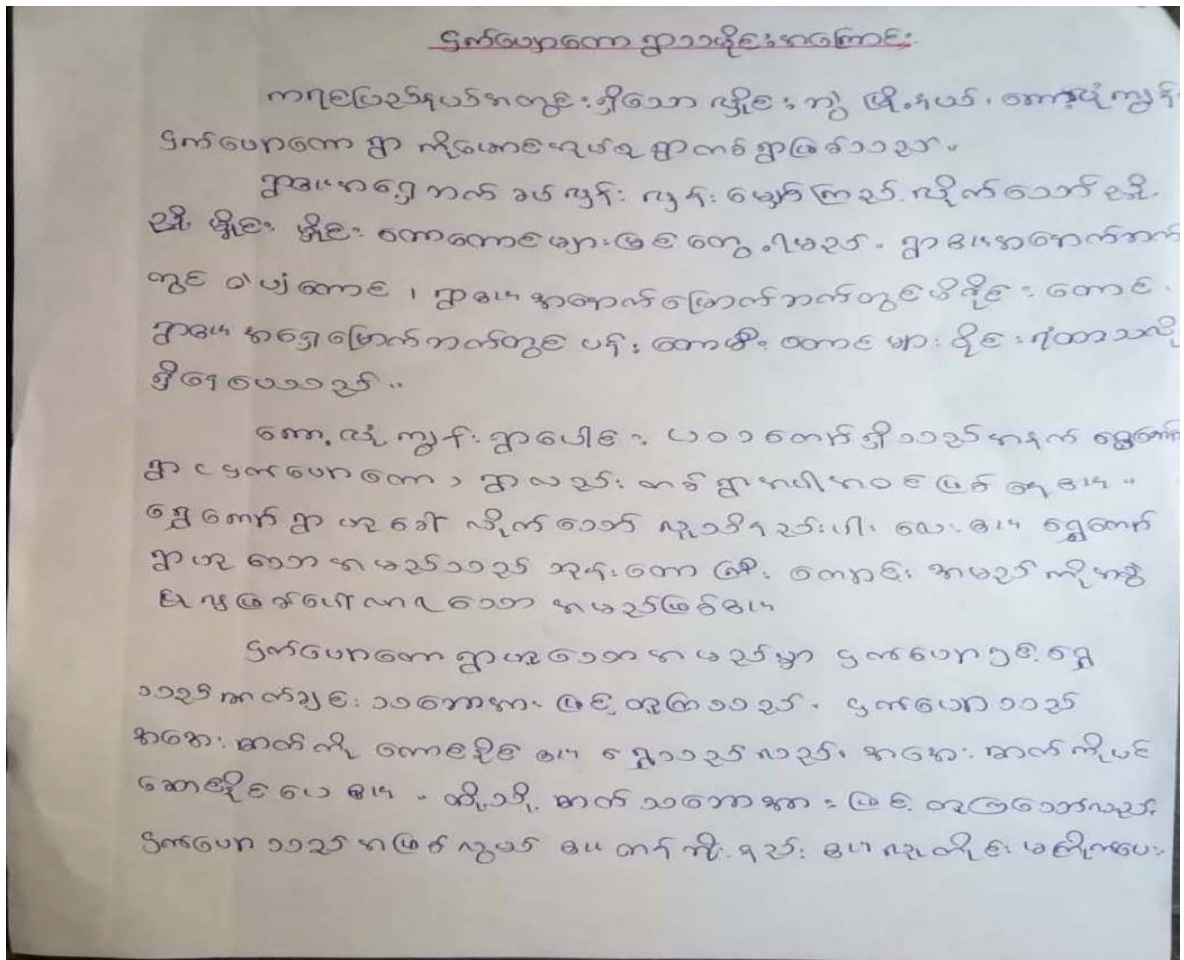 ငှက်ပျောတော ရွာသမိုင်းအကြောင်း
ကရင်ပြည်နယ်အတွင်းရှိသော လှိုင်းဘွဲ့ မြို့နယ်၊ ကော့လှံကျွန်း
ငှက်ပျောတော ရွာ ကိုယောင်ရယ်ရ ရွာတစ်ရွာဖြစ်သည်။
ရွာ၏အရှေ့ဘက် ခပ်လှန်း လှန်း မျှော်ကြည့်လိုက်သော် ညို့
ညို့ မှိုင်း မှိုင်း တောတောင်များမြင်တွေ့ရမည်။ ရွာ၏အနောက်ဘက်
တွင် ဝါးပျံတောင်၊ ရွာ၏အနောက်မြောက်ဘက်တွင် တောင်၊
ရွာ၏ အရှေ့မြောက်ဘက်တွင် ပန်း တောင် များ ဝိုင်းရံထားသလို
ရှိနေပေသည်။
ကော့လှံကျွန်း ရွာပေါင်း ၂၀၁ ကျော်ရှိသည်အနက် ရွှေတော်
ရွာ (ငှက်ပျောတော) ရွာလည်း တစ်ရွာအပါအဝင်ဖြစ်နေ၏။
ရွှေတော် ရွာ ဟု ခေါ် လိုက်သော် လူသိနည်းပါး လေ၏ ရွှေတော်
ရွာဟု သော အမည်သည် ဘုန်းတော်ကြီး ကျောင်း အမည်ကိုအစွဲ
ပြုလျှဖြစ်ပေါ်လာရသော အမည်ဖြစ်၏
ငှက်ပျောတော ရွာဟူသောအမည်မှာ ငှက်ပျောနှင့် ရွှေ
သည်ဓာတ်ချင်း သဘောအားဖြင့် တူကြသည်။ ငှက်ပျောသည်
အအေးဓာတ်ကို ဆောင်နိုင်၏ ရွှေသည်လည်း အအေးဓာတ်ကိုပင်
ဆောင်နိုင်ပေ၏။ ထို့သို့ ဓာတ်သဘောအားဖြင့် တူကြသော်လည်း
ငှက်ပျောသည် အဖြစ်လွယ်၏ တန်ဘိုးနည်း၏ လူတိုင်း မကြိုက်ပေ။